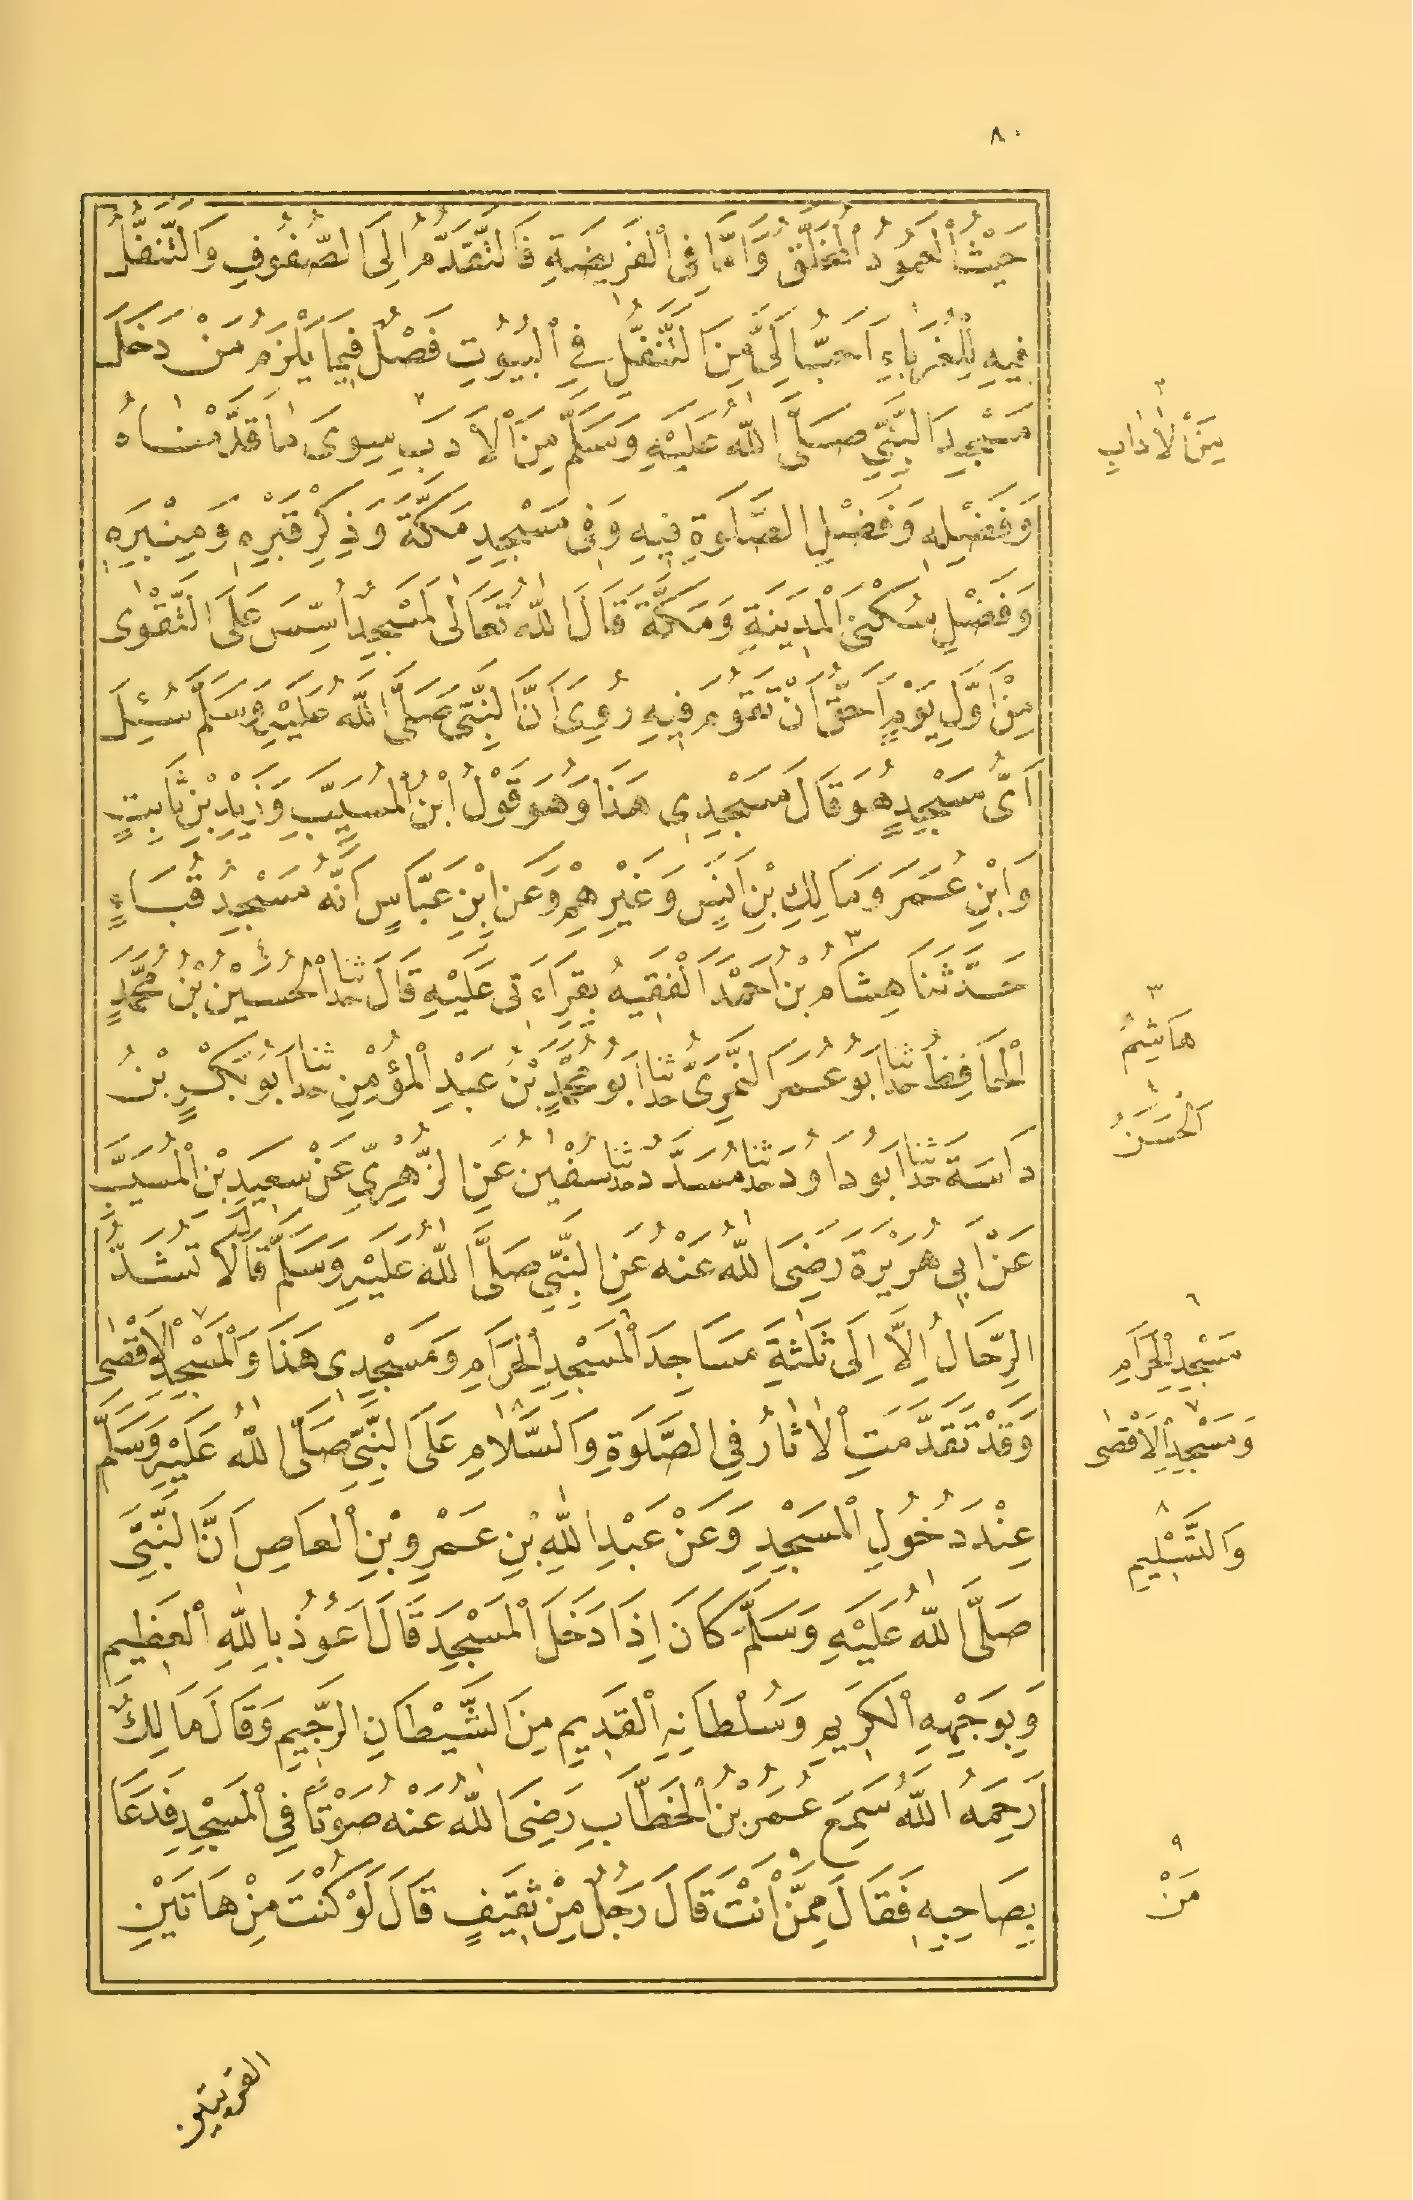 ٨٠
حَيْثُ الْعَمُودُ الْمُخَلَّقُ وَاَمَّا فِى الْفَرِيضَةِ فَالتَّقَدُّمُ اِلَى الصُّفُوفِ وَالتَّنَفُّلُ
فِيهِ لِلْغُرَبَاءِ اَحَبُّ اِلَىَّ مِنَ التَّنَفُّلِ فِى الْبُيُوتِ فَصْلٌ فِيمَا يَلْزَمُ مَنْ دَخَلَ
مَسْجِدَ النَّبِىِّ صَلَّى اللّٰهُ عَلَيْهِ وَسَلَّمَ مِنَ الْاَدَبِ ٢ سِوَى مَا قَدَّمْنَاهُ
وَفَضْلِهِ وَفَضْلِ الصَّلٰوةِ فِيهِ وَفِى مَسْجِدِ مَكَّةَ وَذِكْرِ قَبْرِهِ وَمِنْبَرِهِ
وَفَضْلِ سُكْنَى الْمَدِينَةِ وَمَكَّةَ قَالَ اللّٰهُ تَعَالٰى لَمَسْجِدٌ اُسِّسَ عَلَى التَّقْوٰى
مِنْ اَوَّلِ يَوْمٍ اَحَقُّ اَنْ تَقُومَ فِيهِ رُوِىَ اَنَّ النَّبِىَّ صَلَّى اللّٰهُ عَلَيْهِ وَسَلَّمَ سُئِلَ
اَىُّ مَسْجِدٍ هُوَ قَالَ مَسْجِدِى هَذَا وَهُوَ قَوْلُ ابْنِ الْمُسَيَّبِ وَزَيْدِ بْنِ ثَابِتٍ
وَابْنِ عُمَرَ وَمَالِكِ بْنِ اَنَسٍ وَغَيْرِهِمْ وَعَنِ ابْنِ عَبَّاسٍ اَنَّهُ مَسْجِدُ قُبَاءٍ
حَدَّثَنَا هِشَامُ ٣ بْنُ اَحْمَدَ الْفَقِيهُ بِقِرَاءَتِى عَلَيْهِ قَالَ حَدَّثَنَا الْحُسَيْنُ ٤ بْنُ مُحَمَّدٍ
الْحَافِظُ حَدَّثَنَا اَبُو عُمَرَ النَّمَرِىُّ حَدَّثَنَا اَبُو مُحَمَّدِ بْنُ عَبْدِ الْمُؤْمِنِ حَدَّثَنَا اَبُو بَكْرِ بْنُ
دَاسَةَ حَدَّثَنَا اَبُو دَاوُدَ حَدَّثَنَا مُسَدَّدٌ حَدَّثَنَا سُفْيٰنُ عَنِ الزُّهْرِىِّ عَنْ سَعِيدِ بْنِ الْمُسَيَّبِ
عَنْ اَبِى هُرَيْرَةَ رَضِىَ اللّٰهُ عَنْهُ عَنِ النَّبِىِّ صَلَّى اللّٰهُ عَلَيْهِ وَسَلَّمَ قَالَ لَا تُشَدُّ
الرِّحَالُ اِلَّا اِلَى ثَلٰثَةِ مَسَاجِدَ الْمَسْجِدِ الْحَرَامِ ٦ وَمَسْجِدِى هَذَا وَالْمَسْجِدِ الْاَقْصٰى ٧
وَقَدْ تَقَدَّمَتِ الْاٰثَارُ فِى الصَّلٰوةِ وَالسَّلَامِ ٨ عَلَى النَّبِىِّ صَلَّى اللّٰهُ عَلَيْهِ وَسَلَّمَ
عِنْدَ دُخُولِ الْمَسْجِدِ وَعَنْ عَبْدِ اللّٰهِ بْنِ عَمْرِو بْنِ الْعَاصِ اَنَّ النَّبِىَّ
صَلَّى اللّٰهُ عَلَيْهِ وَسَلَّمَ كَانَ اِذَا دَخَلَ الْمَسْجِدَ قَالَ اَعُوذُ بِاللّٰهِ الْعَظِيمِ
وَبِوَجْهِهِ الْكَرِيمِ وَسُلْطَانِهِ الْقَدِيمِ مِنَ الشَّيْطَانِ الرَّجِيمِ وَقَالَ مَالِكٌ
رَحِمَهُ اللّٰهُ سَمِعَ عُمَرُ بْنُ الْخَطَّابِ رَضِىَ اللّٰهُ عَنْهُ صَوْتًا فِى الْمَسْجِدِ فَدَعَا
بِصَاحِبِهِ فَقَالَ مِمَّنْ ٩ اَنْتَ قَالَ رَجُلٌ مِنْ ثَقِيفٍ قَالَ لَوْ كُنْتَ مِنْ هَاتَيْنِ
القريتين
٢
مِنَ الْاٰدَابِ
٣
هَاشِمُ
٤
الْحَسَنُ
٦
مَسْجِدِ الْحَرَامِ
٧
وَمَسْجِدِ الْاَقْصٰى
٨
وَالتَّسْلِيمِ
٩
مَنْ